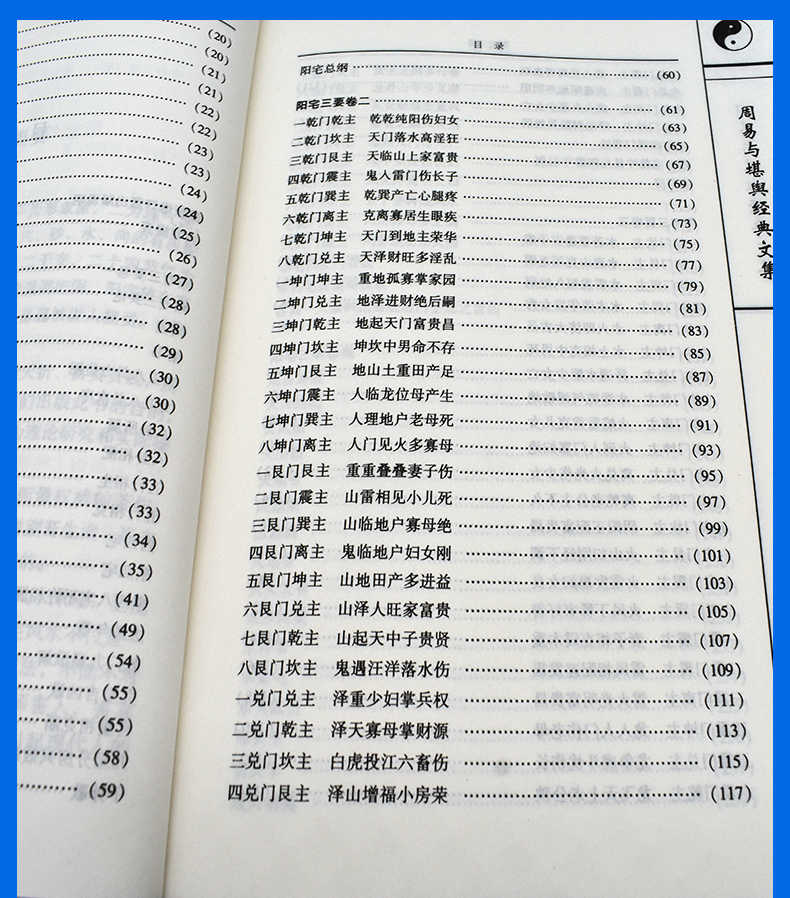 (20)
(20)
(21)
(21)
(22)
(22)
(23)
(23)
(24)
(24)
(25)
(26)
(27)
(28)
(28)
(29)
(30)
(30)
(32)
(32)
(33)
(33)
(34)
(35)
(41)
(49)
(54)
(55)
(55)
(58)
(59)
目 录
阳宅总纲 (60)
阳宅三要卷二 (61)
一乾门乾主 乾乾纯阳伤妇女 (63)
二乾门坎主 天门落水高淫狂 (65)
三乾门艮主 天临山上家富贵 (67)
四乾门震主 鬼入雷门伤长子 (69)
五乾门巽主 乾巽产亡心腿疼 (71)
六乾门离主 克离寡居生眼疾 (73)
七乾门坤主 天门到地主荣华 (75)
八乾门兑主 天泽财旺多淫乱 (77)
一坤门坤主 重地孤寡掌家园 (79)
二坤门兑主 地泽进财绝后嗣 (81)
三坤门乾主 地起天门富贵昌 (83)
四坤门坎主 坤坎中男命不存 (85)
五坤门艮主 地山土重田产足 (87)
六坤门震主 人临龙位母产生 (89)
七坤门巽主 人理地户老母死 (91)
八坤门离主 人门见火多寡母 (93)
一艮门艮主 重重叠叠妻子伤 (95)
二艮门震主 山雷相见小儿死 (97)
三艮门巽主 山临地户寡母绝 (99)
四艮门离主 鬼临地户妇女刚 (101)
五艮门坤主 山地田产多进益 (103)
六艮门兑主 山泽人旺家富贵 (105)
七艮门乾主 山起天中子贵贤 (107)
八艮门坎主 鬼遇汪洋落水伤 (109)
一兑门兑主 泽重少妇掌兵权 (111)
二兑门乾主 泽天寡母掌财源 (113)
三兑门坎主 白虎投江六畜伤 (115)
四兑门艮主 泽山增福小房荣 (117)
周易与堪舆经典文集